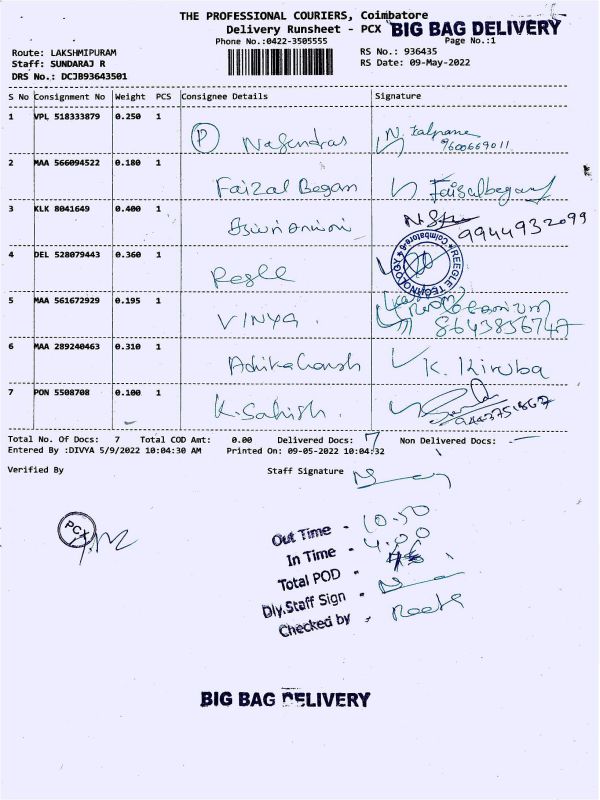 THE PROFESSIONAL COURIERS, Coimbatore
Delivery Runsheet - PCX BIG BAG DELIVERY
Phone No.:0422-3505555 Page No.:1
Route: LAKSHMIPURAM RS No.: 936435
Staff: SUNDARAJ R RS Date: 09-May-2022
DRS No.: DCJB93643501
S No Consignment No Weight PCS Consignee Details Signature
1 VPL 518333879 0.250 1 P Nagendras
9600669011
2 MAA 566094522 0.180 1 Faizal Began Faizalbegan
3 KLK 8041649 0.400 1
9944932099
4 DEL 528079443 0.360 1 REEGLE TECHNOLOGY Coimbatore-6
5 MAA 561672929 0.195 1 VINYA.
8643856747
6 MAA 289240463 0.310 1 K. Kiruba
7 PON 5508708 0.100 1 K. Sahish.
Total No. Of Docs: 7 Total COD Amt: 0.00 Delivered Docs: 7 Non Delivered Docs: -
Entered By :DIVYA 5/9/2022 10:04:30 AM Printed On: 09-05-2022 10:04:32
Verified By Staff Signature
PCX
Out Time - 10.50
In Time - 4.00
Total POD -
Dly.Staff Sign -
Checked by -
BIG BAG DELIVERY